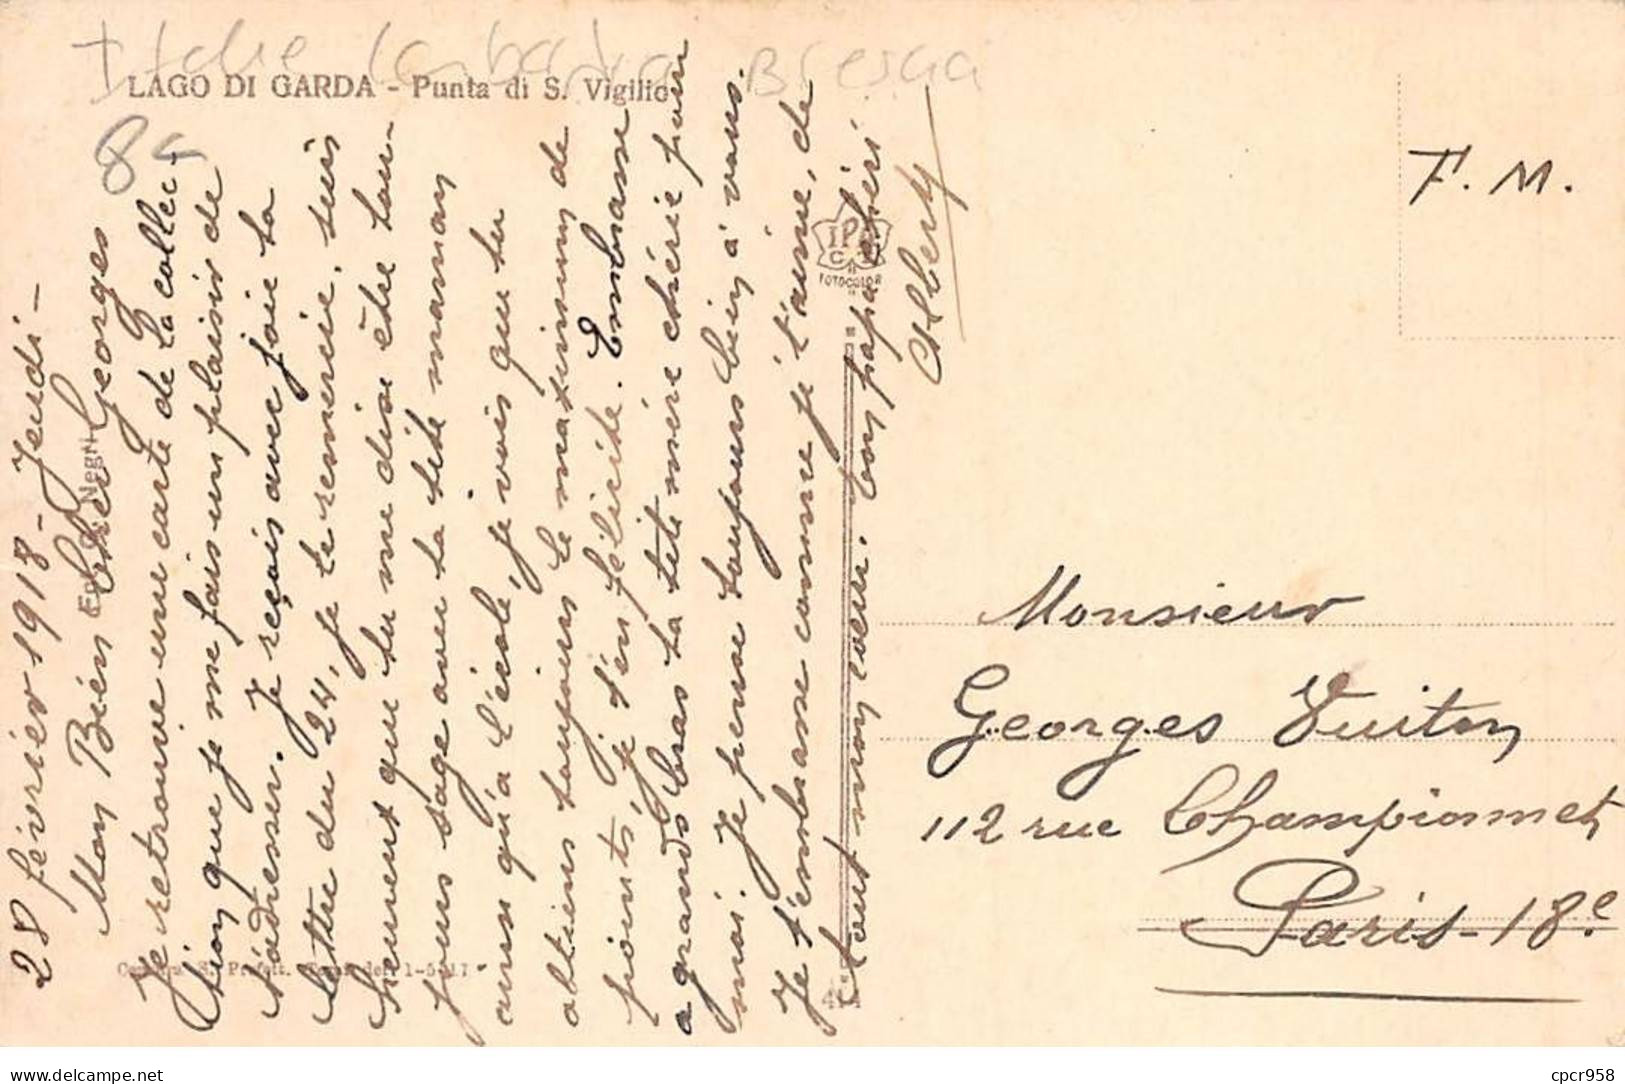 Italie Lombardia Brescia
LAGO DI GARDA - Punta di S. Vigilio
8c
28 février 1918 - Jeudi -
Mon Bien Cher Georges
Je retrouve une carte de la collec-
tion que je me fais un plaisir de
t'adresser. Je reçois avec joie ta
lettre du 24, je te remercie, suis
heureux que tu me dises être tou-
jours sage avec ta tite maman
ainsi qu'à l'école, je vois que tu
obtiens toujours le maximum de
points, je t'en félicite. Embrasse
a grands bras ta tite mère chérie pour
moi. Je pense toujours bien à vous.
Je t'embrasse comme je t'aime, de
tout mon cœur. Ton papa chéri
Albert
Negri
1-5-17
IPA
CT
FOTOCOLOR
F. M.
Monsieur
Georges Vuiton
112 rue Championnet
Paris - 18e
Delcampe.net
cpcr958